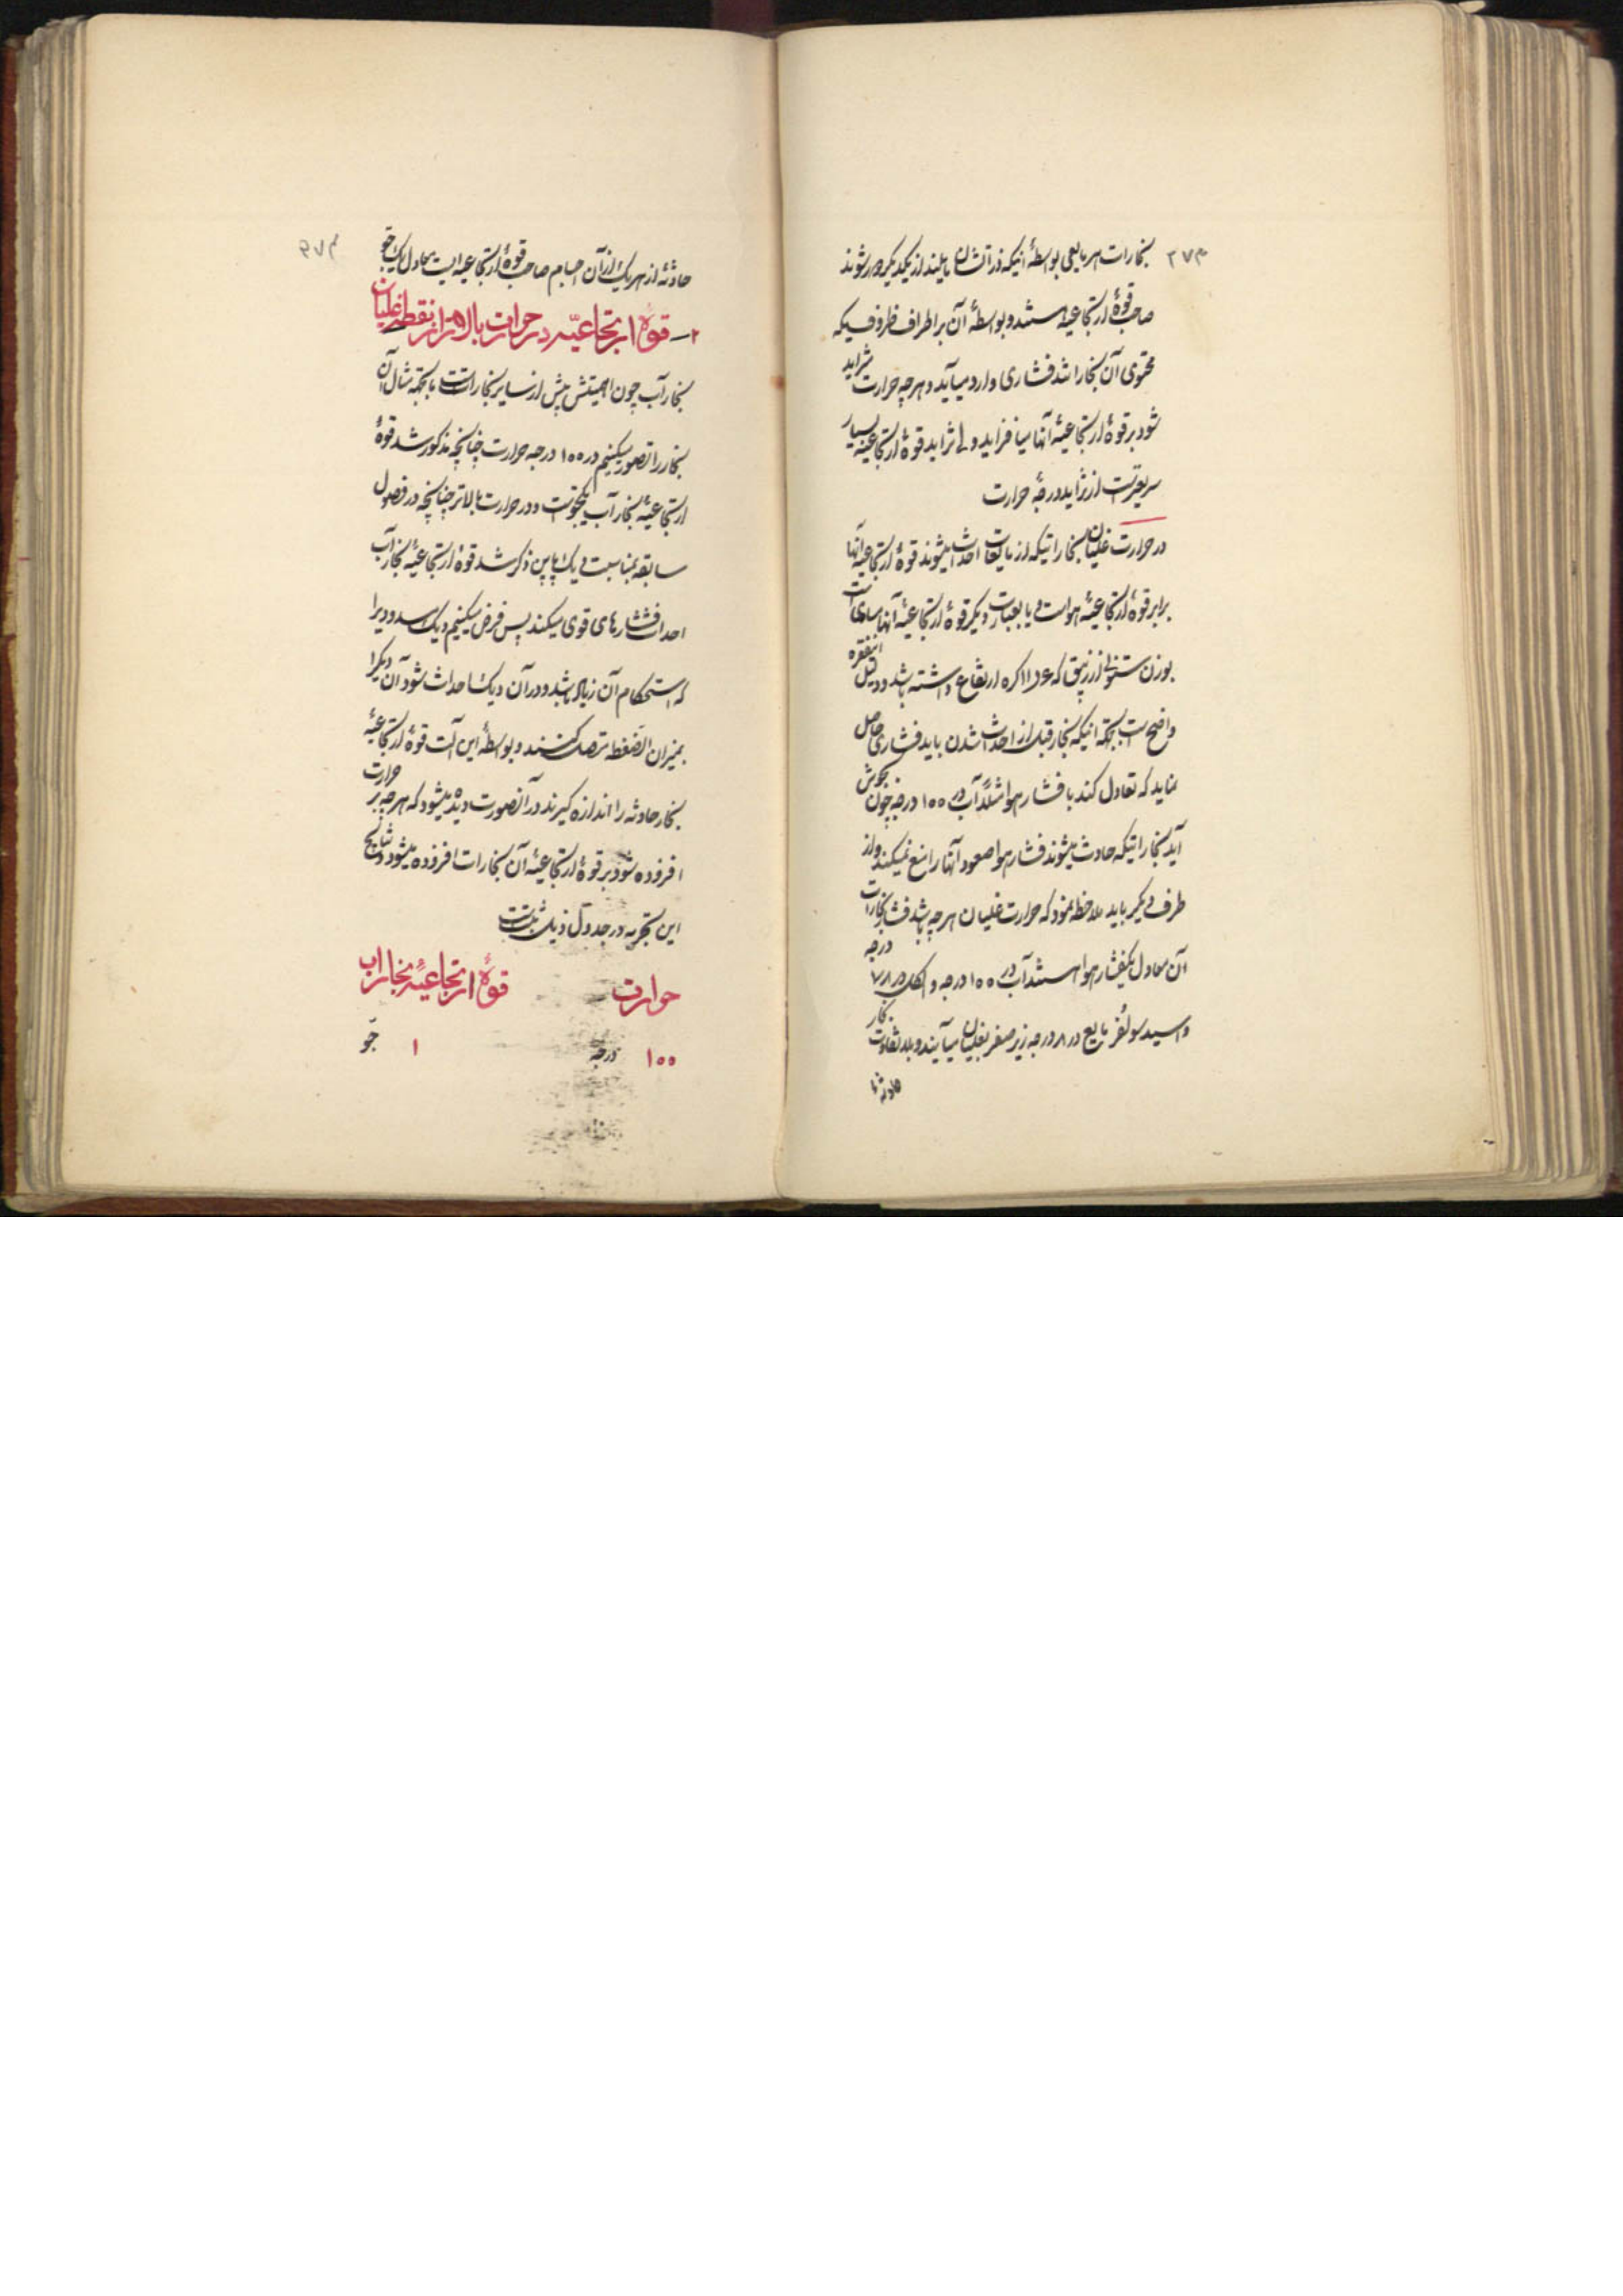 ۲۷۳
بخارات هر مایعی بواسطهٔ اینکه ذراتشان مایلند از یکدیگر دور شوند
صاحب قوهٔ ارتجاعیه هستند و بواسطهٔ آن بر اطراف ظروفیکه
محتوی آن بخار باشد فشاری وارد میآید و هرچه حرارت متزاید
شود بر قوهٔ ارتجاعیهٔ آنها میافزاید ولی تزاید قوهٔ ارتجاعیه بسیار
سریعتر است از تزاید درجهٔ حرارت
در حرارت غلیان بخاراتیکه از مایعات احداث میشوند قوهٔ ارتجاعیهٔ آنها
برابر قوهٔ ارتجاعیهٔ هواست و یا بعبارت دیگر قوهٔ ارتجاعیهٔ آنها مساوی است
بوزن ستونی از زیبق که ارتفاع داشته باشد و دلیل اینفقره
واضح است بجهة اینکه بخار قبل از احداث شدن باید فشاری حاصل
نماید که تعادل کند با فشار هوا مثلاً آب در ۱۰۰ درجه چون بجوش
آید بخاراتیکه حادث میشوند فشار هوا صعود آنها را منع نمیکند و از
طرف دیگر باید ملاحظه نمود که حرارت غلیان هرچه باشد فشار بخارات
آن معادل یکفشار هوا هستند آب در ۱۰۰ درجه و الکل در ۷۸ درجه
و اسید سولفر مایع در ۸ درجه زیر صفر بغلیان میآیند و بلا تفاوت بخار
حادثهٔ از هر یک از آن اجسام صاحب قوهٔ ارتجاعیه ایست معادل یک جوّ
۲ــ قوهٔ ارتجاعیّه در حرارت بالاتر از نقطهٔ غلیان
بخار آب چون اهمیتش بیش از سایر بخارات است باینجهة مثال آن
بخار را تصور میکنیم در ۱۰۰ درجه حرارت چنانچه مذکور شد قوهٔ
ارتجاعیهٔ بخار آب یکجوّ است و در حرارت بالاتر چنانچه در فصول
سابقه بمناسبت دیک پاپن ذکر شد قوهٔ ارتجاعیهٔ بخار آب
احداث فشارهای قوی میکند پس فرض میکنیم دیک مسدودیرا
که استحکام آن زیاد باشد و در آن دیک احداث شود آن دیک را
بمیزان الضغطه متصل کنند و بواسطهٔ این آلت قوهٔ ارتجاعیهٔ
بخار حادثه را اندازه گیرند در آنصورت دیده میشود که هرچه بر حرارت
افزوده شود بر قوهٔ ارتجاعیهٔ آن بخارات افزوده میشود و نتایج
این تجربه در جدول ذیل ثبت است
حرارت قوهٔ ارتجاعیّهٔ بخار آب
۱۰۰ درجه ۱ جوّ